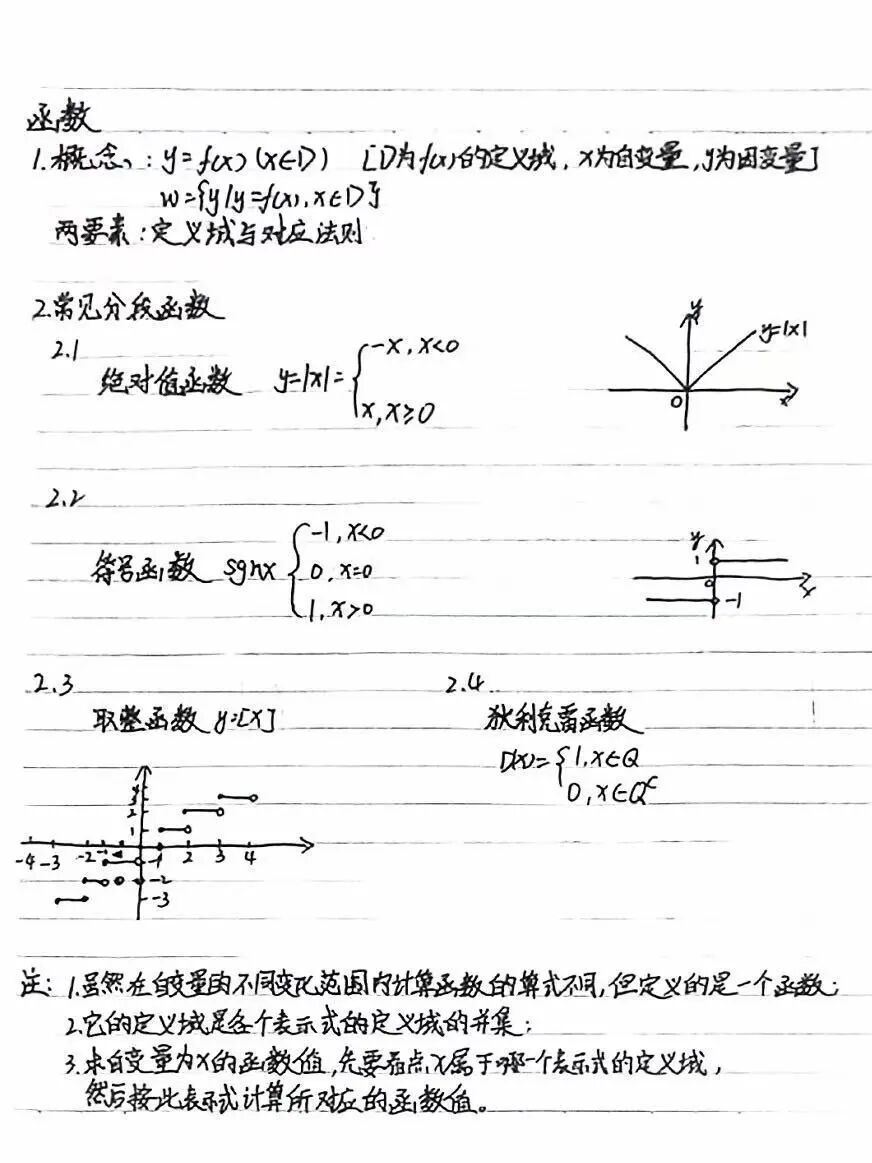 函数
1.概念：y=f(x)(x∈D) [D为f(x)的定义域，x为自变量，y为因变量]
w={y|y=f(x),x∈D}
两要素：定义域与对应法则
2.常见分段函数
2.1
绝对值函数 y=|x|={-x,x<0
x,x≥0
y
y=|x|
0
x
2.2
符号函数 sgnx {-1,x<0
0,x=0
1,x>0
y
1
0
x
-1
2.3
取整函数 y=[x]
3
2
1
-4 -3 -2 -1 1 2 3 4
-2
-3
2.4
狄利克雷函数
D(x)={1,x∈Q
0,x∈Qᶜ
注：1.虽然在自变量的不同变化范围内计算函数的算式不同，但定义的是一个函数；
2.它的定义域是各个表示式的定义域的并集；
3.求自变量为x的函数值，先要看点x属于哪一个表示式的定义域，
然后按此表示式计算所对应的函数值。